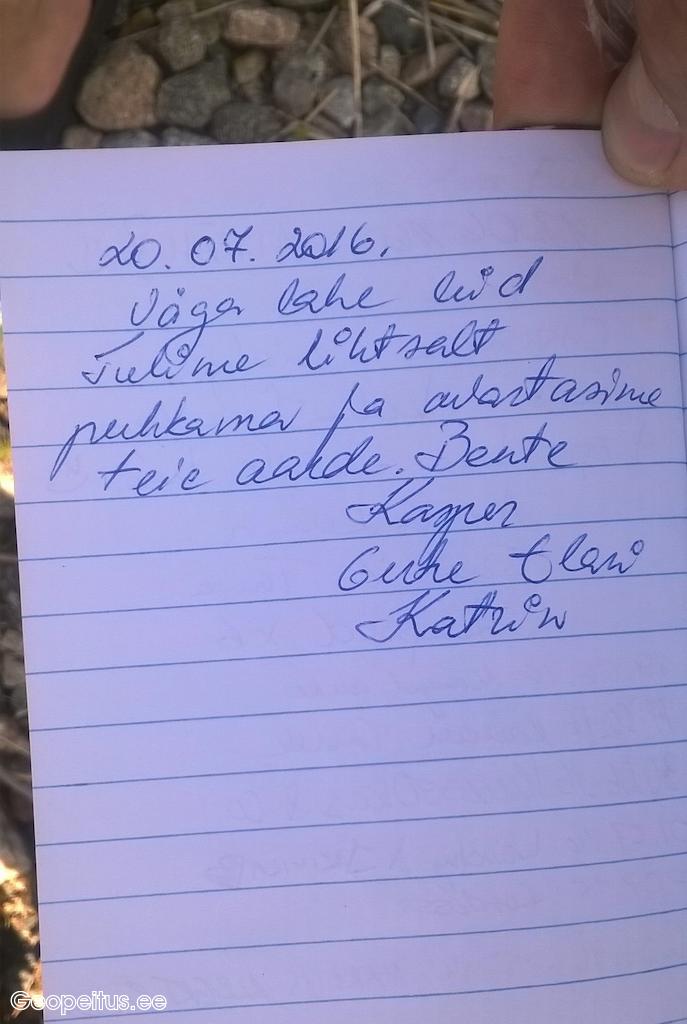 20.07.2016.
Väga lahe leid
Tulime lihtsalt
puhkama ja avastasime
teie aarde. Bente
Kasper
Gerke Elari
Katrin
Geopeitus.ee